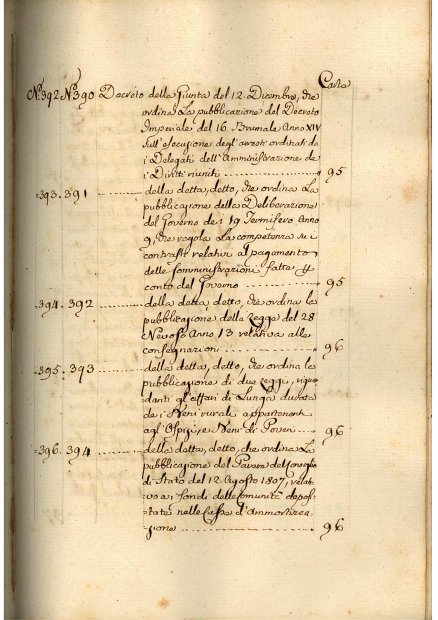 Carte
N.º 392. N.º 390 Decreto della Giunta del 12. Dicembre, che
ordina la pubblicazione del Decreto
Imperiale del 16. Brumale Anno XIV
sull'esecuzione degl'arresti ordinati da
i Delegati dell'Amministrazione de
i Diritti riuniti " 95
393. 391 della detta, detto, che ordina la
pubblicazione della Deliberazione
del Governo de i 19 Termifero Anno
9, che regola la competenza su i
contrasti relativi al pagamento
delle somministrazioni fatte
conto del Governo " 95
394. 392 della detta, detto, che ordina la
pubblicazione della Legge del 28
Nevoso Anno 13 relativa alle
consegnazioni " 96
395. 393 della detta, detto, che ordina la
pubblicazione di due Leggi, riguar
danti gl'affari di Lunga durata
de i Beni rurali appartenenti
agl'Ospizi, e Beni di Poveri " 96
396. 394 della detta, detto, che ordina la
pubblicazione del Parere del Consiglio
di Stato del 12 Agosto 1807, relati
vo a i fondi delle Comunità deposi
tate nelle Casse d'ammortizza
zione " 96